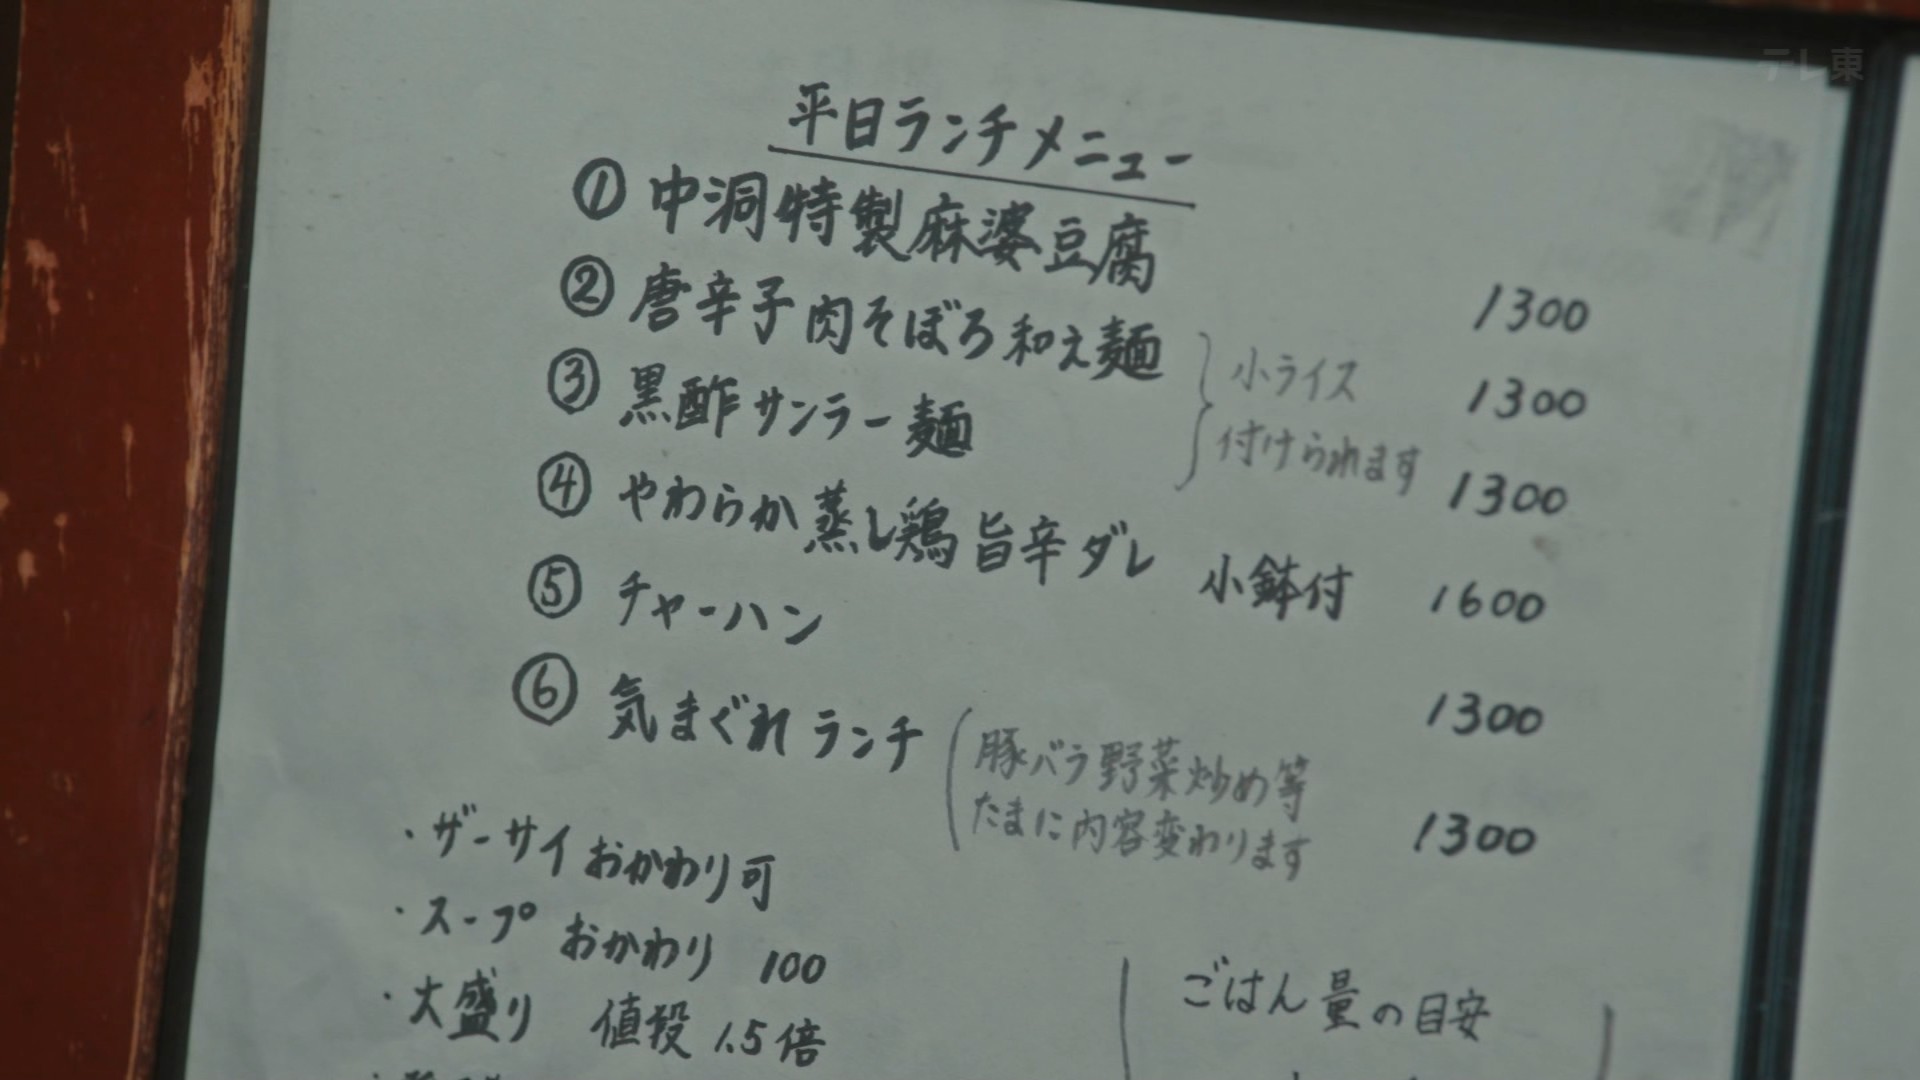 テレ東
平日ランチメニュー
① 中洞特製麻婆豆腐 1300
② 唐辛子肉そぼろ和え麺 1300
③ 黒酢サンラー麺 1300
小ライス
付けられます
④ やわらか蒸し鶏旨辛ダレ 小鉢付 1600
⑤ チャーハン 1300
⑥ 気まぐれランチ 1300
豚バラ野菜炒め等
たまに内容変わります
・ザーサイおかわり可
・スープ おかわり 100
・大盛り 値段 1.5倍
ごはん量の目安